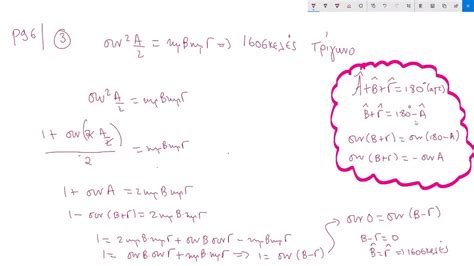 pg 6 | ③ συν²A/2 = ημBημΓ ⇒ ισοσκελές τρίγωνο
συν²A/2 = ημBημΓ
(1 + συν(2·A/2))/2 = ημBημΓ
1 + συνA = 2ημBημΓ
1 - συν(B+Γ) = 2ημBημΓ
1 = 2ημBημΓ + συνBσυνΓ - ημBημΓ
1 = συνBσυνΓ + ημBημΓ ⇒ 1 = συν(B-Γ)
Â+B̂+Γ̂ = 180°
B̂+Γ̂ = 180-Â
συν(B+Γ) = συν(180-A)
συν(B+Γ) = -συνA
συν0 = συν(B-Γ)
B-Γ = 0
B̂ = Γ̂ ⇒ ισοσκελές